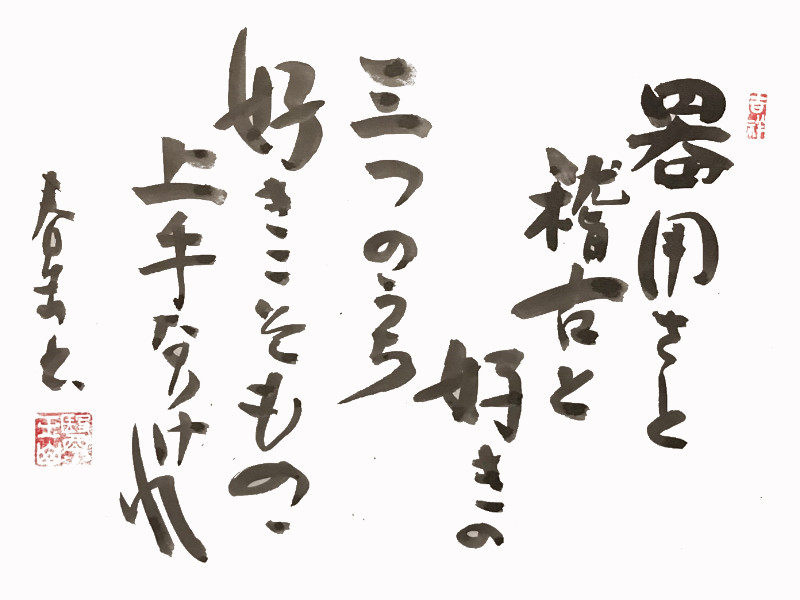 器用さと
稽古と
好きの
三つのうち
好きこそものゝ
上手なりけれ